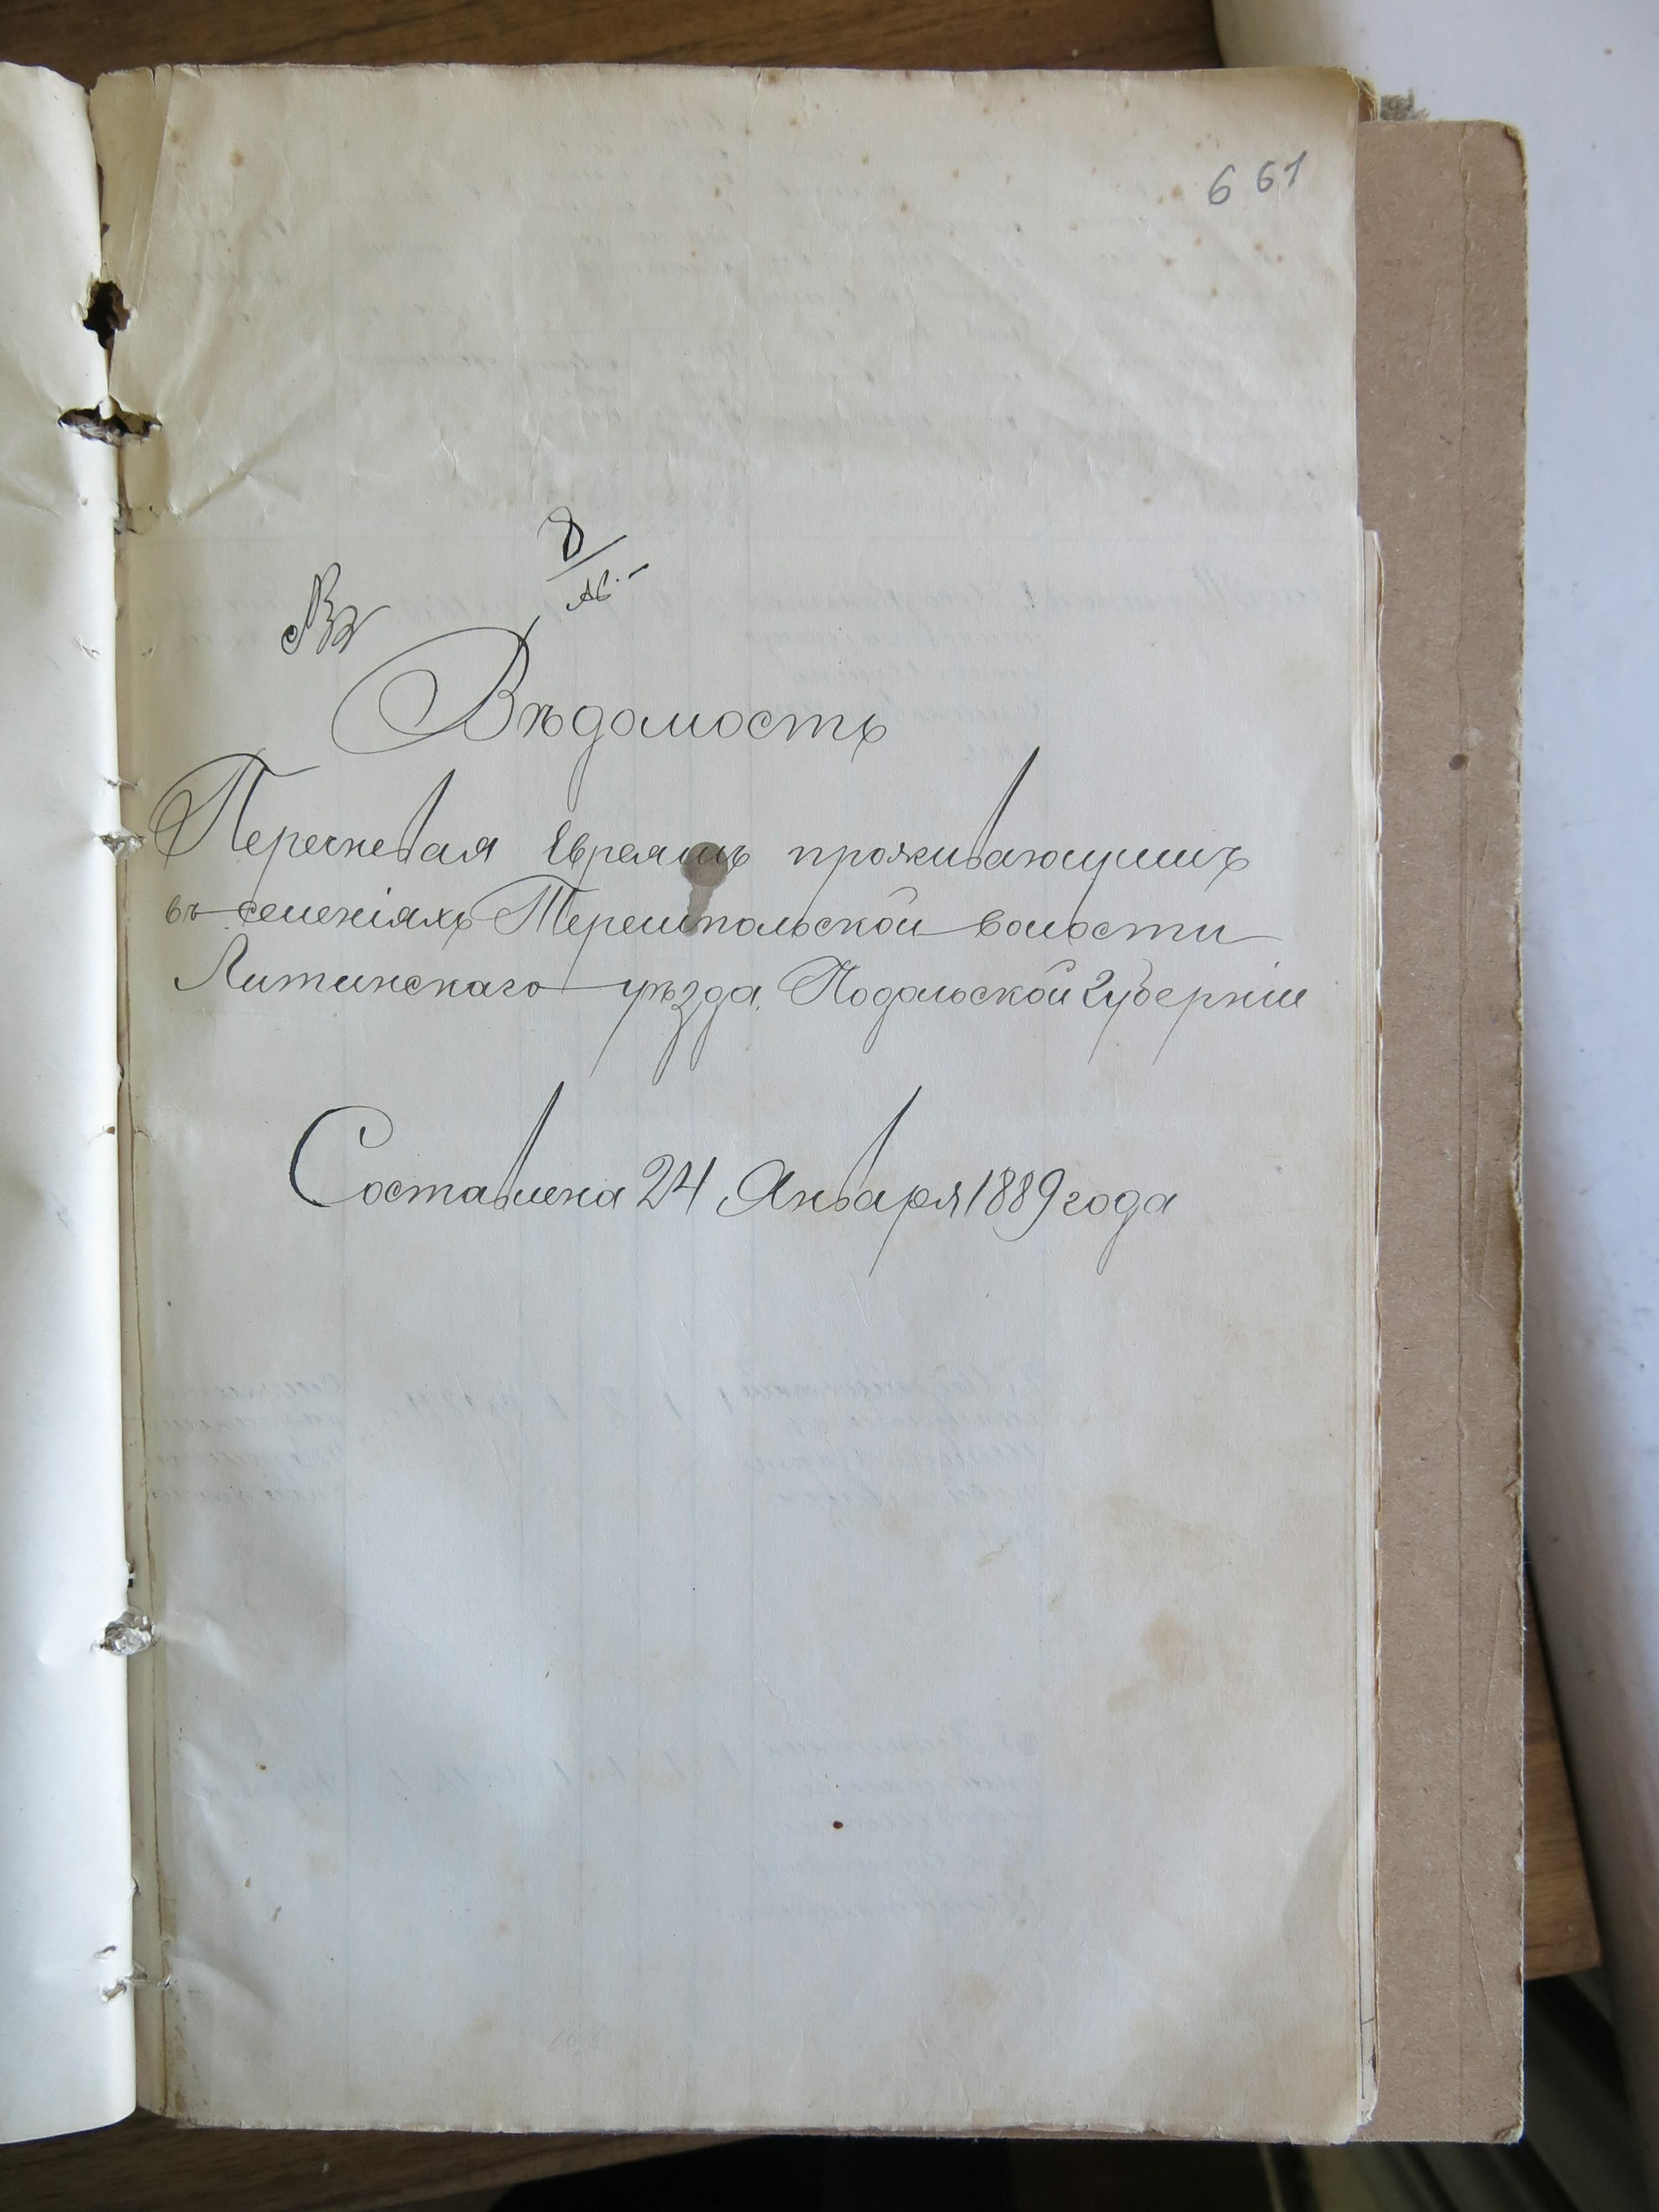 6 61
Вѣдомость
Перечневая Евреямъ проживающимъ
въ селеніяхъ Терешпольской волости
Литинскаго уѣзда Подольской Губерніи
Составлена 24 Января 1889 года